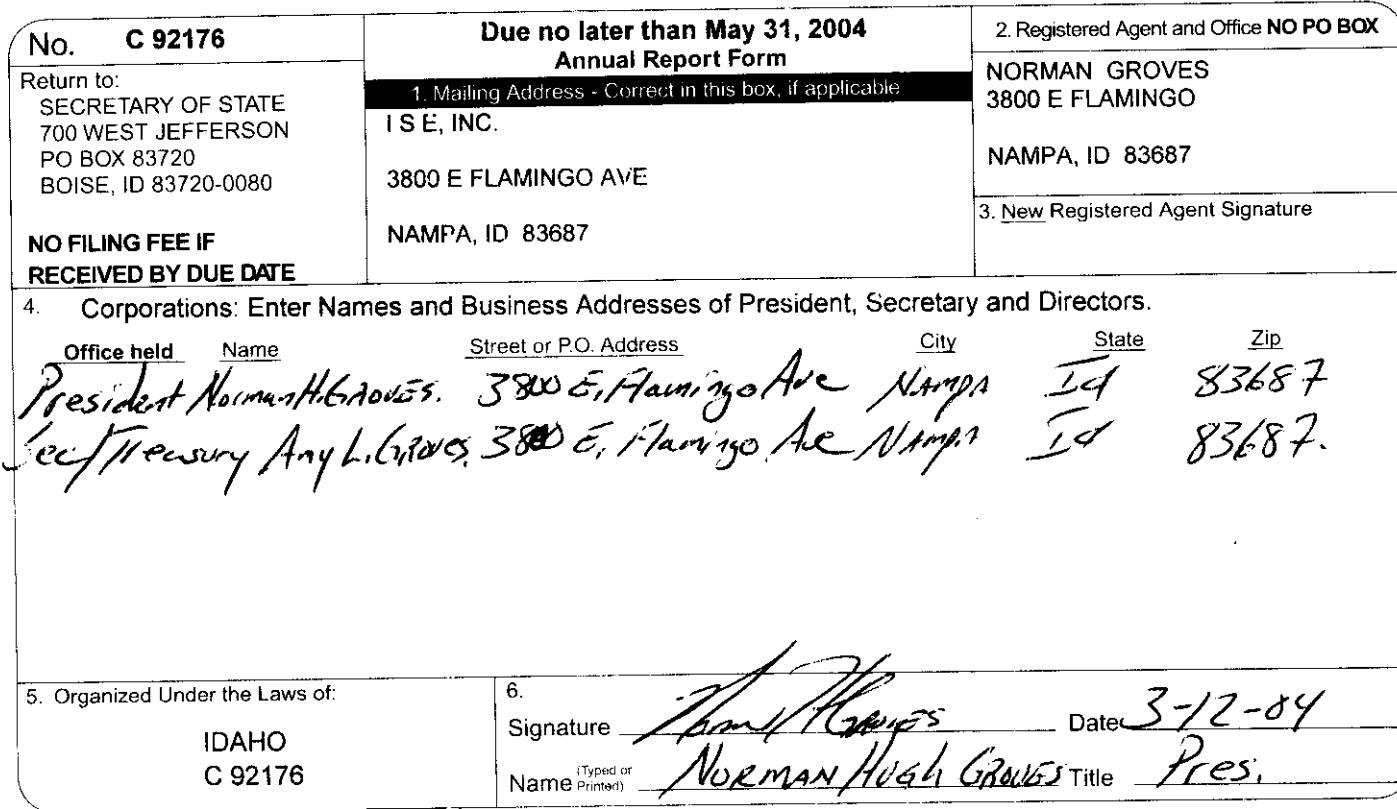 No. C 92176
Return to:
SECRETARY OF STATE
700 WEST JEFFERSON
PO BOX 83720
BOISE, ID 83720-0080
NO FILING FEE IF
RECEIVED BY DUE DATE
Due no later than May 31, 2004
Annual Report Form
1. Mailing Address - Correct in this box, if applicable
I S E, INC.
3800 E FLAMINGO AVE
NAMPA, ID 83687
2. Registered Agent and Office NO PO BOX
NORMAN GROVES
3800 E FLAMINGO
NAMPA, ID 83687
3. New Registered Agent Signature
4. Corporations: Enter Names and Business Addresses of President, Secretary and Directors.
Office held Name Street or P.O. Address City State Zip
President Norman H. GROVES. 3800 E, Flamingo Ave NAMPA Id 83687
Sec/Treasury Amy L. GROVES 3800 E, Flamingo Ave NAMPA Id 83687.
5. Organized Under the Laws of:
IDAHO
C 92176
6.
Signature Norman H GROVES Date 3-12-04
Name (Typed or Printed) NORMAN HUGH GROVES Title Pres.